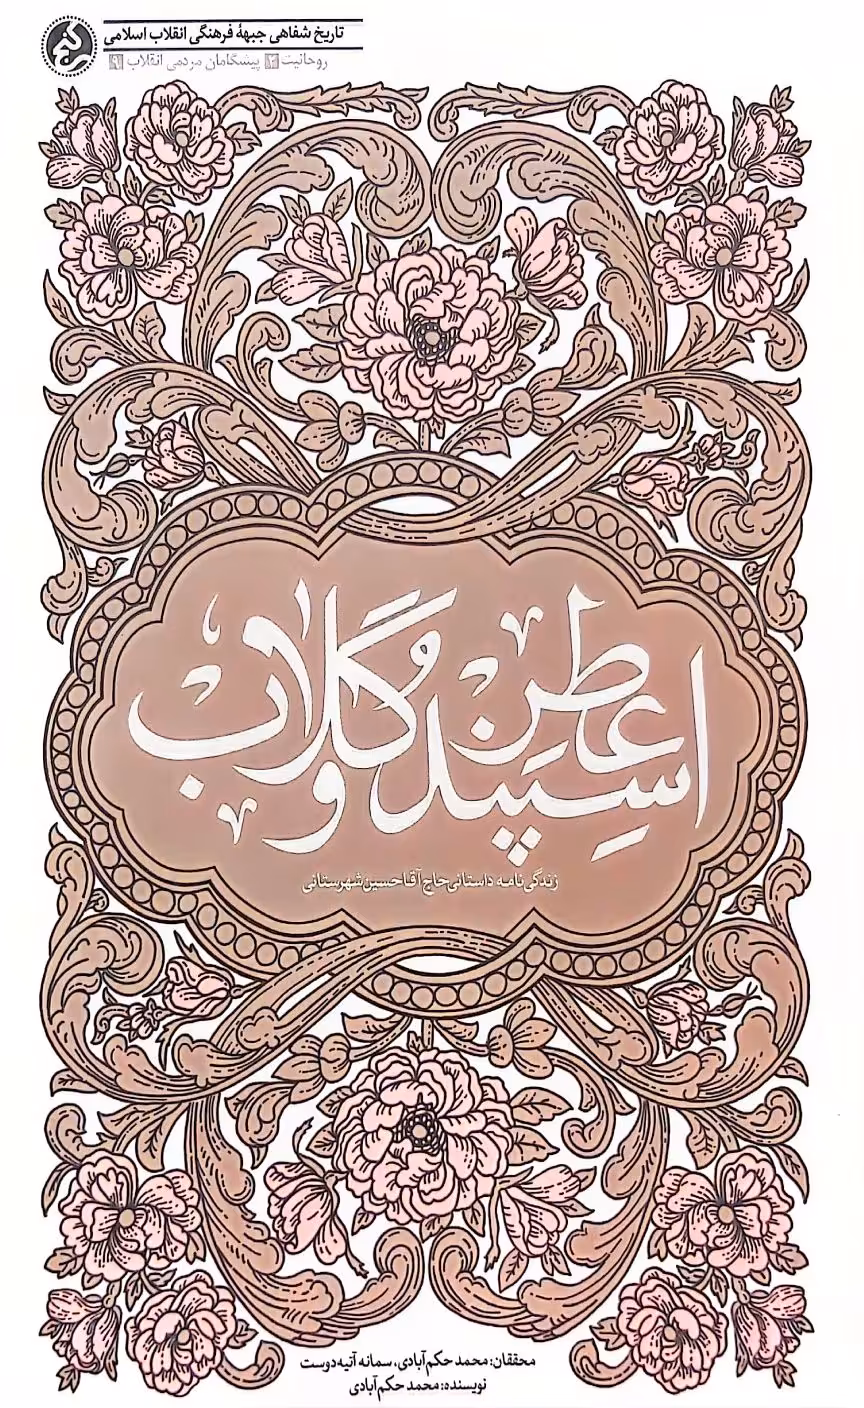 تاریخ شفاهی جبههٔ فرهنگی انقلاب اسلامی
روحانیت ۲ پیشگامان مردمی انقلاب ۹
عطر اسپند و گلاب
زندگی‌نامه داستانی حاج آقا حسین شهرستانی
محققان: محمد حکم‌آبادی، سمانه آتیه‌دوست
نویسنده: محمد حکم‌آبادی